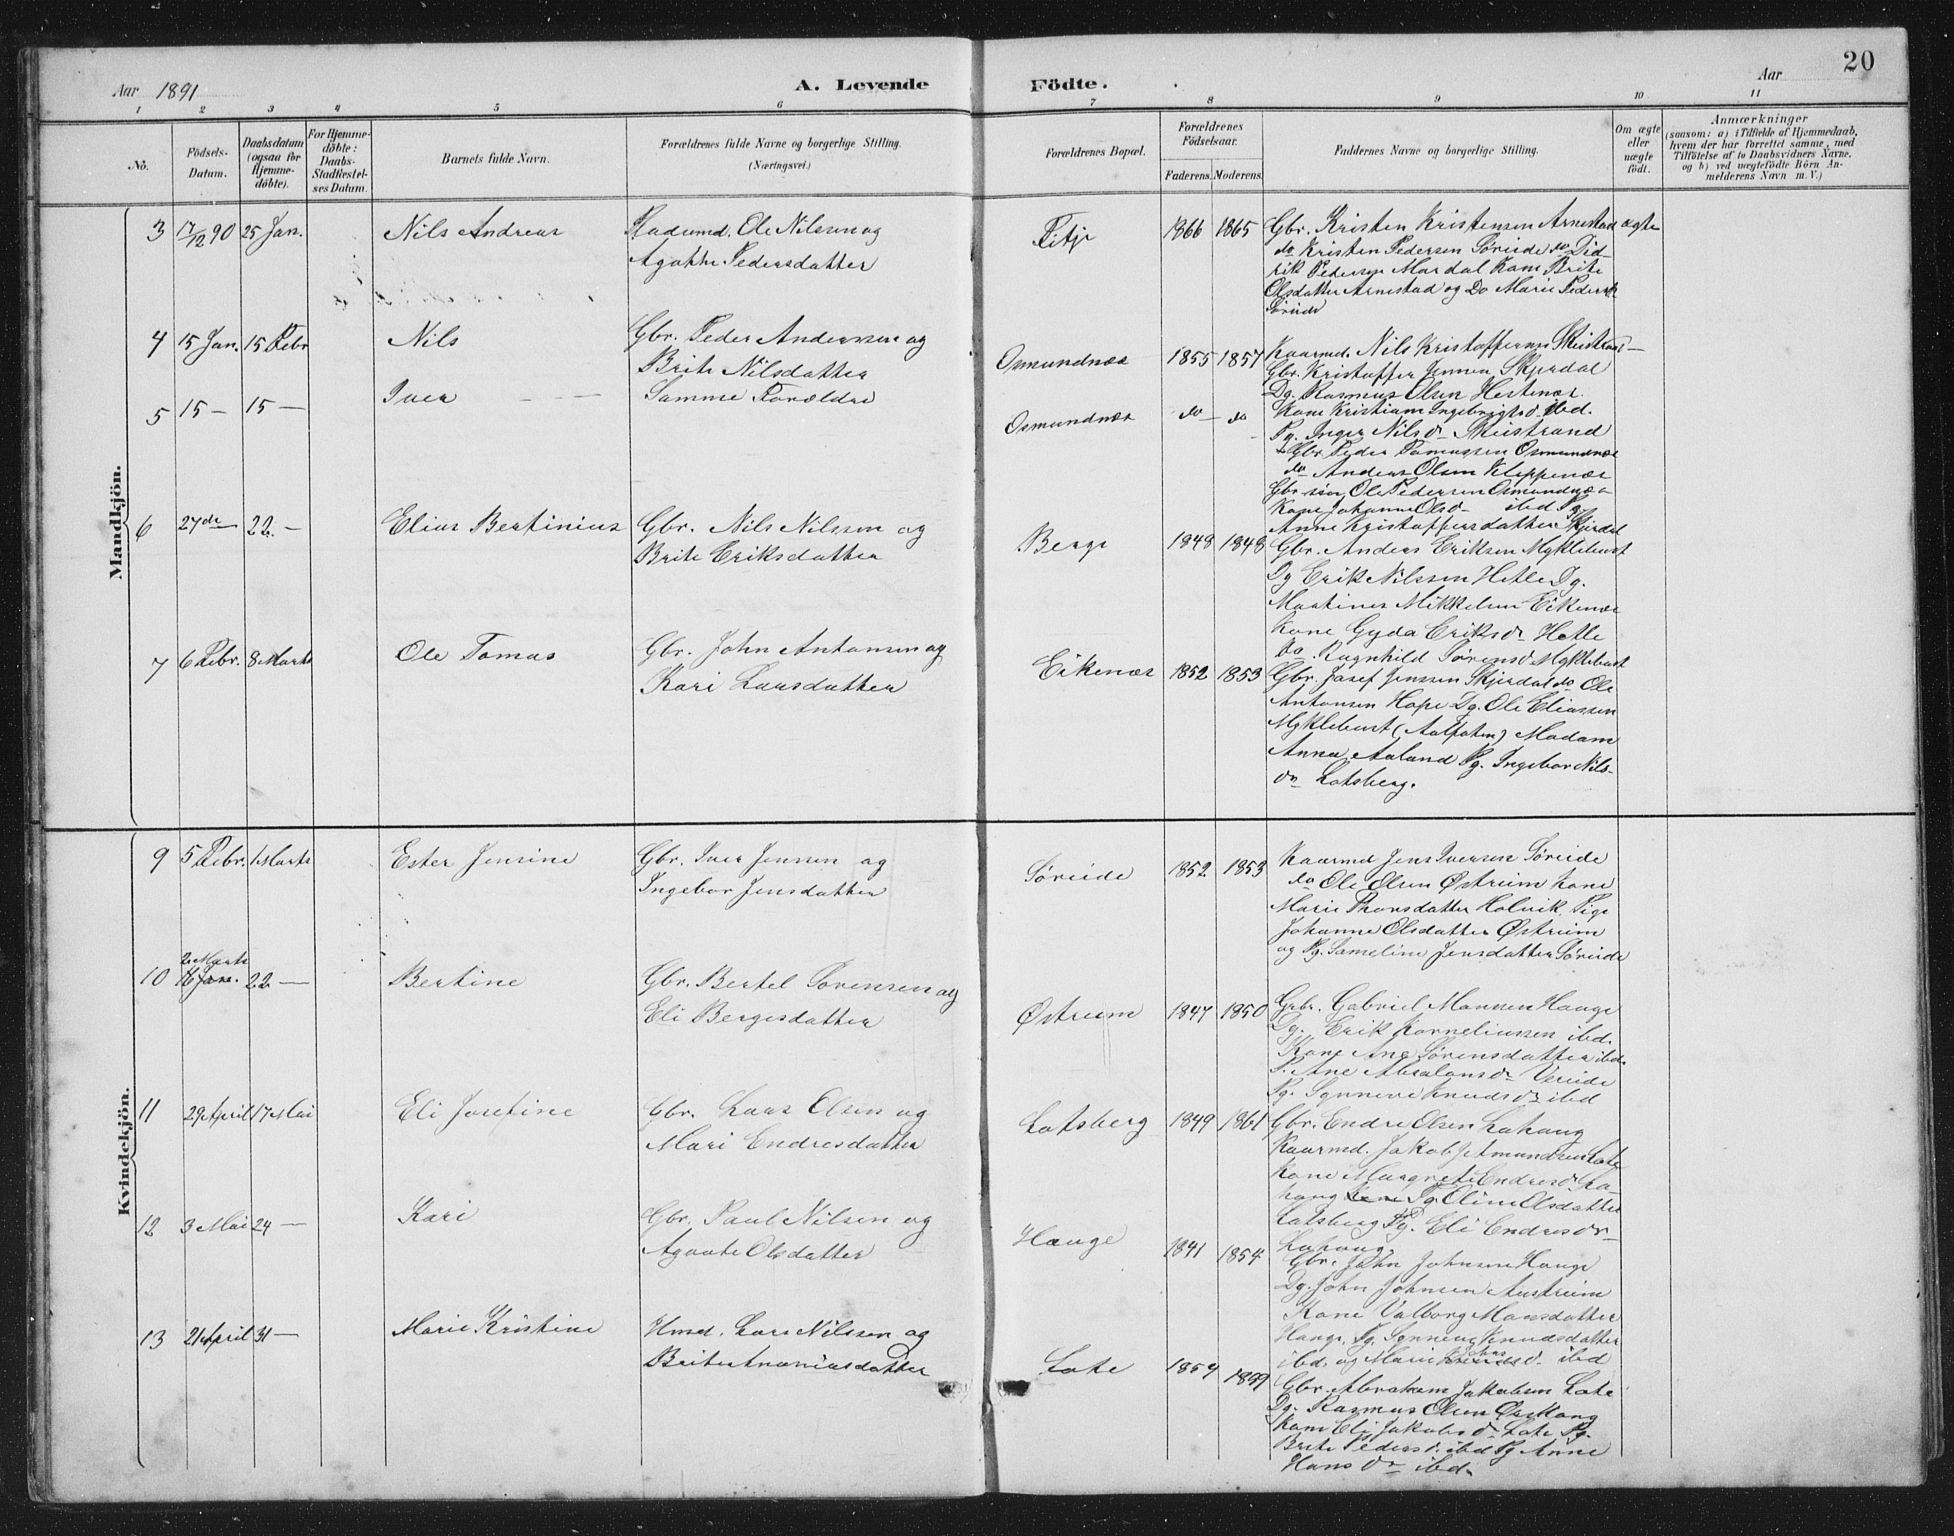 20
Aar 1891
A. Levende Födte.
Aar
1 2 3 4 5 6 7 8 9 10 11
No.
Födsels-Datum.
Daabsdatum (ogsaa for Hjemme-döbte).
For Hjemme-döbte: Daabs-Stadfæstel-ses Datum.
Barnets fulde Navn.
Forældrenes fulde Navne og borgerlige Stilling. (Næringsvei.)
Forældrenes Bopæl.
Forældrenes Födselsaar.
Faderens. Moderens.
Faddernes Navne og borgerlige Stilling.
Om ægte eller uægte födt.
Anmærkninger
(saasom: a) i Tilfælde af Hjemmedaab,
hvem der har forrettet samme, med
Tilföielse af to Daabsvidners Navne,
og b) ved uægtefödte Börn An-
melderens Navn m. V.)
Mandkjön.
3 17/12 90 25 Jan. Nils Andreas
Ole Nilssen og
Agathe Pedersdatter
Fitje 1866 1865
Gbr. Kristen Kristensen Arnestad ægte
do Kristen Pedersen Söreide do Did-
rik Pedersen Mardal Kone Brite
Olsdatter Arnestad og Do Marie Peders
Söreide
4 15 Jan. 15 Febr Nils
Gbr. Peder Andersen og
Brite Nilsdatter
Osmundnæs 1855 1857
Kaarmd. Nils Kristoffersen
Gbr. Kristoffer Jensen Skjerdal
Dg. Rasmus Olsen Hestenæs
5 15 — 15 — Iver — — —
Samme Forældre
Osmundnæs do — do
Kone Kristiane Ingebrigtsd. ibd.
Pg. Inger Nilsdr Skeistrand
Gbr. Peder Rasmussen Osmundnæs
do Anders Olsen Kleppenæs
Gbr søn Ole Pedersen Osmundnæs
Kone Johanne Olsdr ibd Pg
Anne Kristoffersdatter Skjerdal
6 27de 22 — Elias Bertinius
Gbr. Nils Nilssen og
Brite Eriksdatter
Berge 1848 1848
Gbr. Anders Eriksen Myklebust
Dg Erik Nilssen Hetle Dg.
Martines Mikkelsen Eikenæs
Kone Gyda Eriksdr Hetle
do. Ragnhild Sörensd Myklebust
7 6 Febr. 8 Marts Ole Tomas
Gbr. John Antonsen og
Kari Larsdatter
Eikenæs 1852 1853
Gbr. Josef Jenssen Skjerdal do Ole
Antonsen Hope Dg. Ole Eliassen
Myklebust (Aalfoten) Madam
Anna Aaland Pg. Ingebor Nils-
dr Lotsberg.
Kvindekjön.
9 5 Febr. 1 Marts Ester Jensine
Gbr. Iver Jensen og
Ingebor Jensdatter
Söreide 1852 1853
Kaarmd Jens Iversen Söreide
do Ole Olsen Østreim Kone
Marie Thorsdatter Holvik Pige
Johanne Olsdatter Østreim
og Pg. Sameline Jensdatter Söreide
2 Marts
10 16 Jan. 22 — Bertine
Gbr. Bertel Sörensen og
Eli Bergesdatter
Østreim 1847 1850
Gbr. Gabriel Monsen Hauge
Dg. Erik Korneliussen ibd.
Kone Ane Sörensdatter ibd.
P. Ane Absalonsdr Vereide
Pg. Synneve Knudsdr ibd
11 29 April 17 Mai Eli Josefine
Gbr. Lars Olsen og
Mari Endresdatter
Lotsberg 1849 1861
Gbr. Endre Olsen Lohaug
Kaarmd. Jakob J Amundsen Lote
Kone Margrete Endresd. Lo-
haug Kone Pg. Oline Olsdatter
Lotsberg Pg. Eli Endresdr
Lohaug.
12 3 Mai 24 — Kari
Gbr. Paul Nilsen og
Agaate Olsdatter
Hauge 1841 1854
Gbr. John Johnsen Hauge
Dg. John Johnsen Austreim
Kone Valborg Monsdatter
Hauge. Pg. Synneve Knudsdatter
ibd. og Marie ibd
13 21 April 31 — Marie Kristine
Hmd. Lars Nilssen og
Brite Ananiasdatter
Lote 1854 1859
Gbr. Abraham Jakobsen Lote
Dg. Rasmus Olsen
Kone Eli Jakobsdr Lote Pg.
Brite Pedersd. ibd Pg Anne
Hansdr ibd.